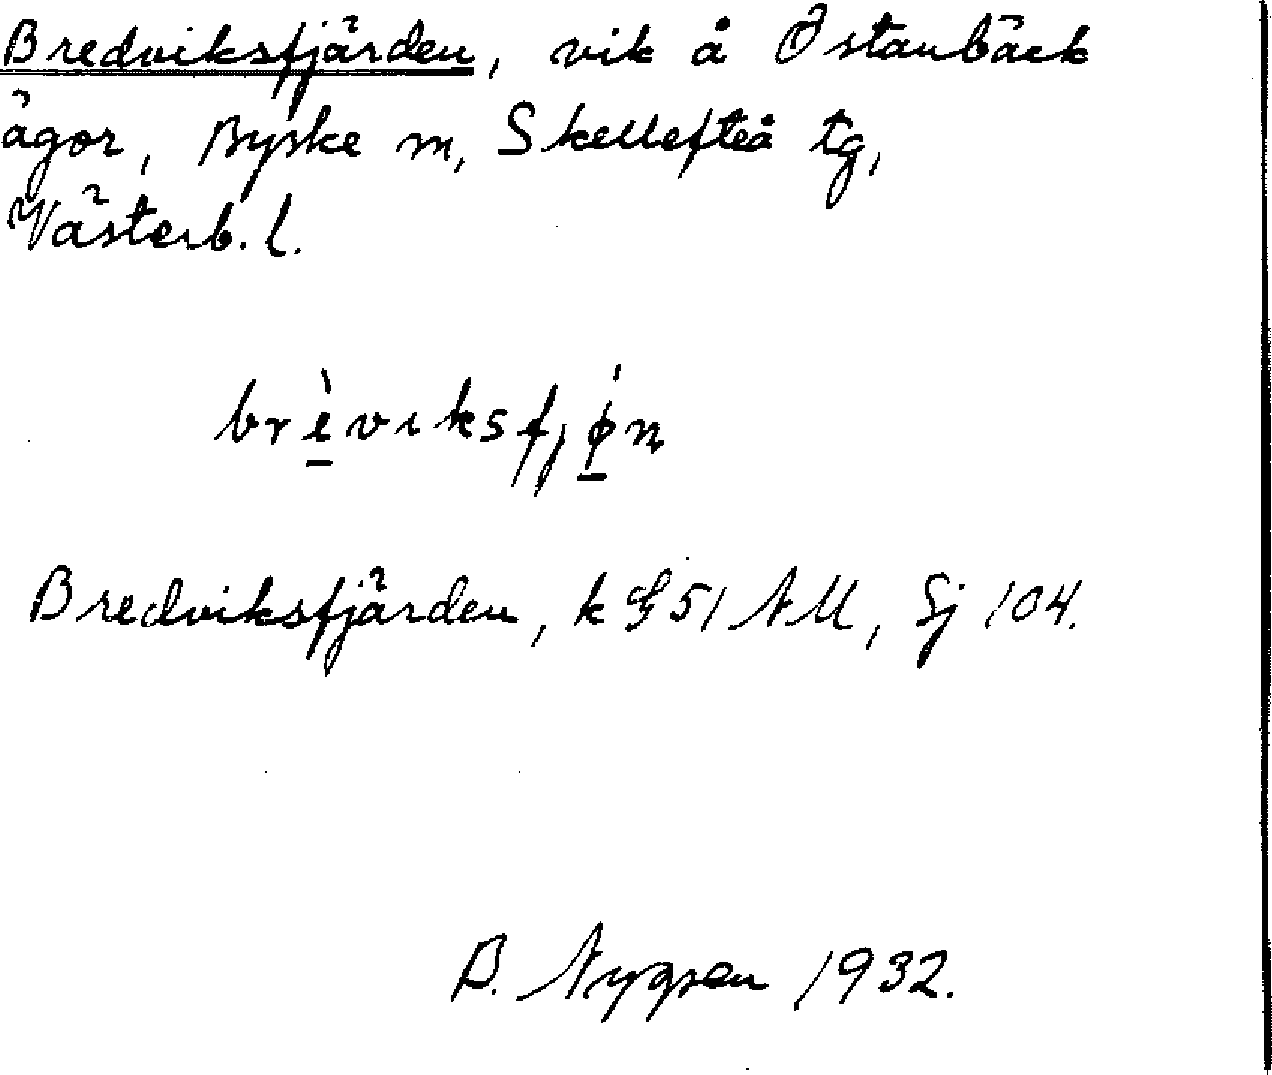 Bredviksfjärden, vik å Östanbäck
ägor, Byske m, Skellefteå tg,
Västerb. l.
brèviksfjǿn
Bredviksfjärden, k 51 NM, Sj 104.
B. Nygren 1932.